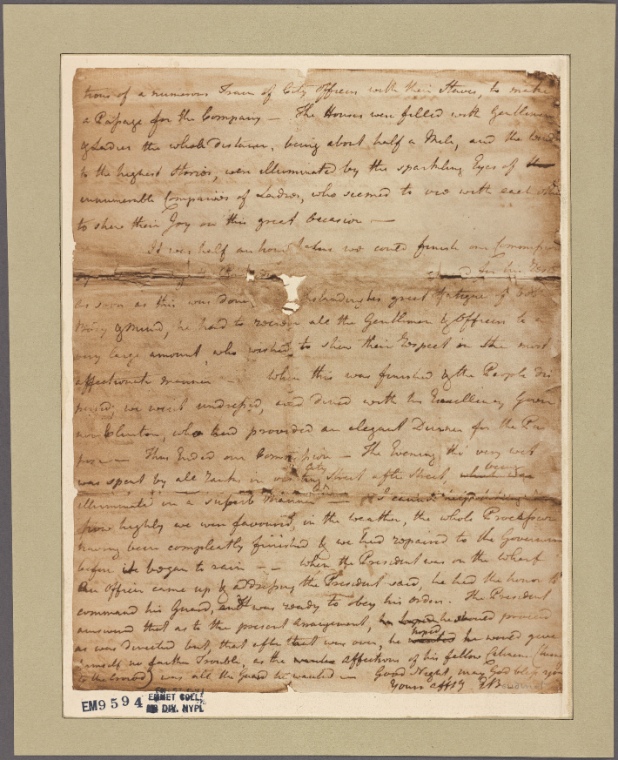 tions of a numerous Train of City Officers with their Staves, to make
a Passage for the Company — The Houses were filled with Gentlemen
& Ladies the whole distance, being about half a Mile, and the
to the highest Stories, were illuminated by the sparkling Eyes of the
innumerable Companies of Ladies, who seemed to vie with each other
to shew their Joy on this great Occasion —
It was half an hour before we could finish our Commission
as soon as this was done, great fatigue of
Body & Mind, he had to receive all the Gentlemen & Officers to a
very large amount, who wished to shew their respect in the most
affectionate manner When this was finished & the People dis
persed, we went undressed, and dined with his Excellency Gover
nor Clinton, who had provided an elegant Dinner for the
Thus Ended our — The Evening tho very wet
was spent by all Ranks in Street after Street, being
illuminated in a superb Manner — I cannot
how highly we were favoured, in the weather, the whole Procession
having been compleatly finished & we had repaired to the Governors
before it began to rain — When the President was on the wharf
an Officer came up & addressing the President said, he had the honor to
command his Guard, and was ready to obey his orders. The President
answered that as to the present arrangement, he should proceed
as was directed but, that after that was over, he hoped he would give
himself no further Trouble, as the affections of his fellow Citizens (turning
to the Crowd) was all the Guard he wanted — Good Night may God bless you
Yours affly EB
EM9594
EMMET COLL.
MS DIV. NYPL